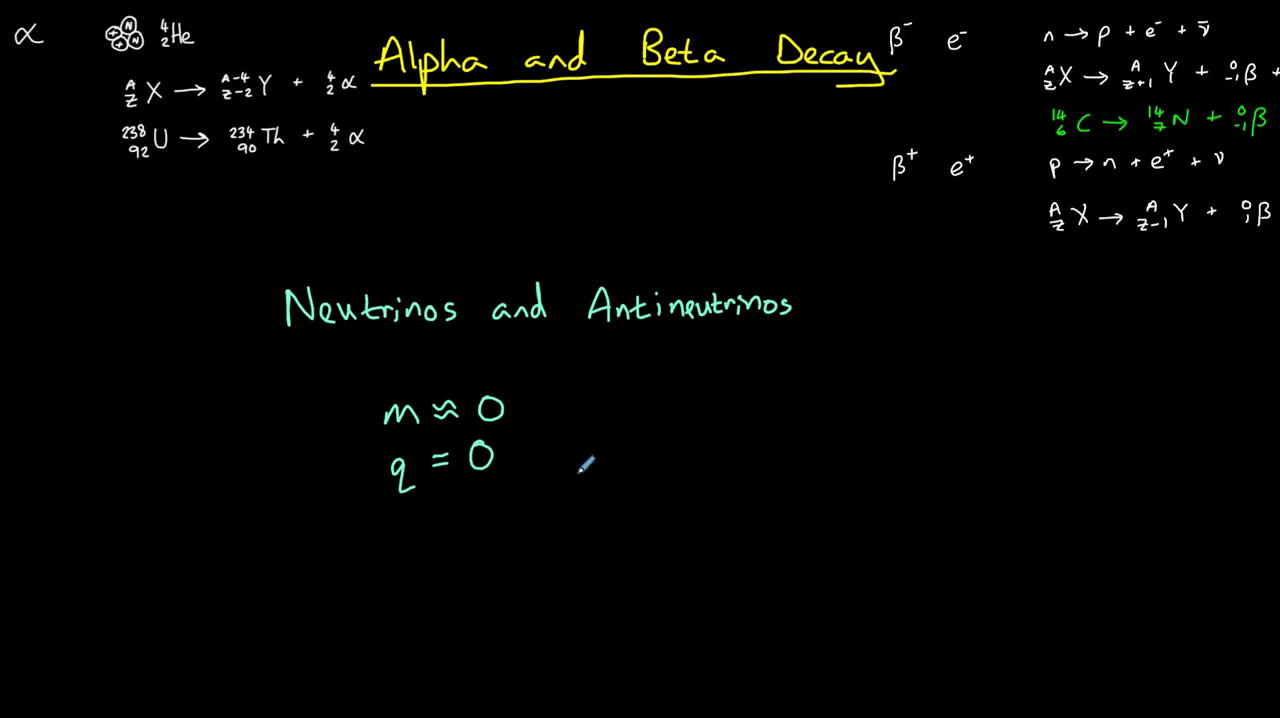 Alpha and Beta Decay
α ⊕ N N ⊕ ⁴₂He
ᴬ_Z X → ᴬ⁻⁴_Z₋₂ Y + ⁴₂α
²³⁸₉₂U → ²³⁴₉₀Th + ⁴₂α
β⁻ e⁻ n → p + e⁻ + ν̄
ᴬ_Z X → ᴬ_Z₊₁ Y + ⁰₋₁β +
¹⁴₆C → ¹⁴₇N + ⁰₋₁β
β⁺ e⁺ p → n + e⁺ + ν
ᴬ_Z X → ᴬ_Z₋₁ Y + ⁰₁β
Neutrinos and Antineutrinos
m ≈ 0
q = 0